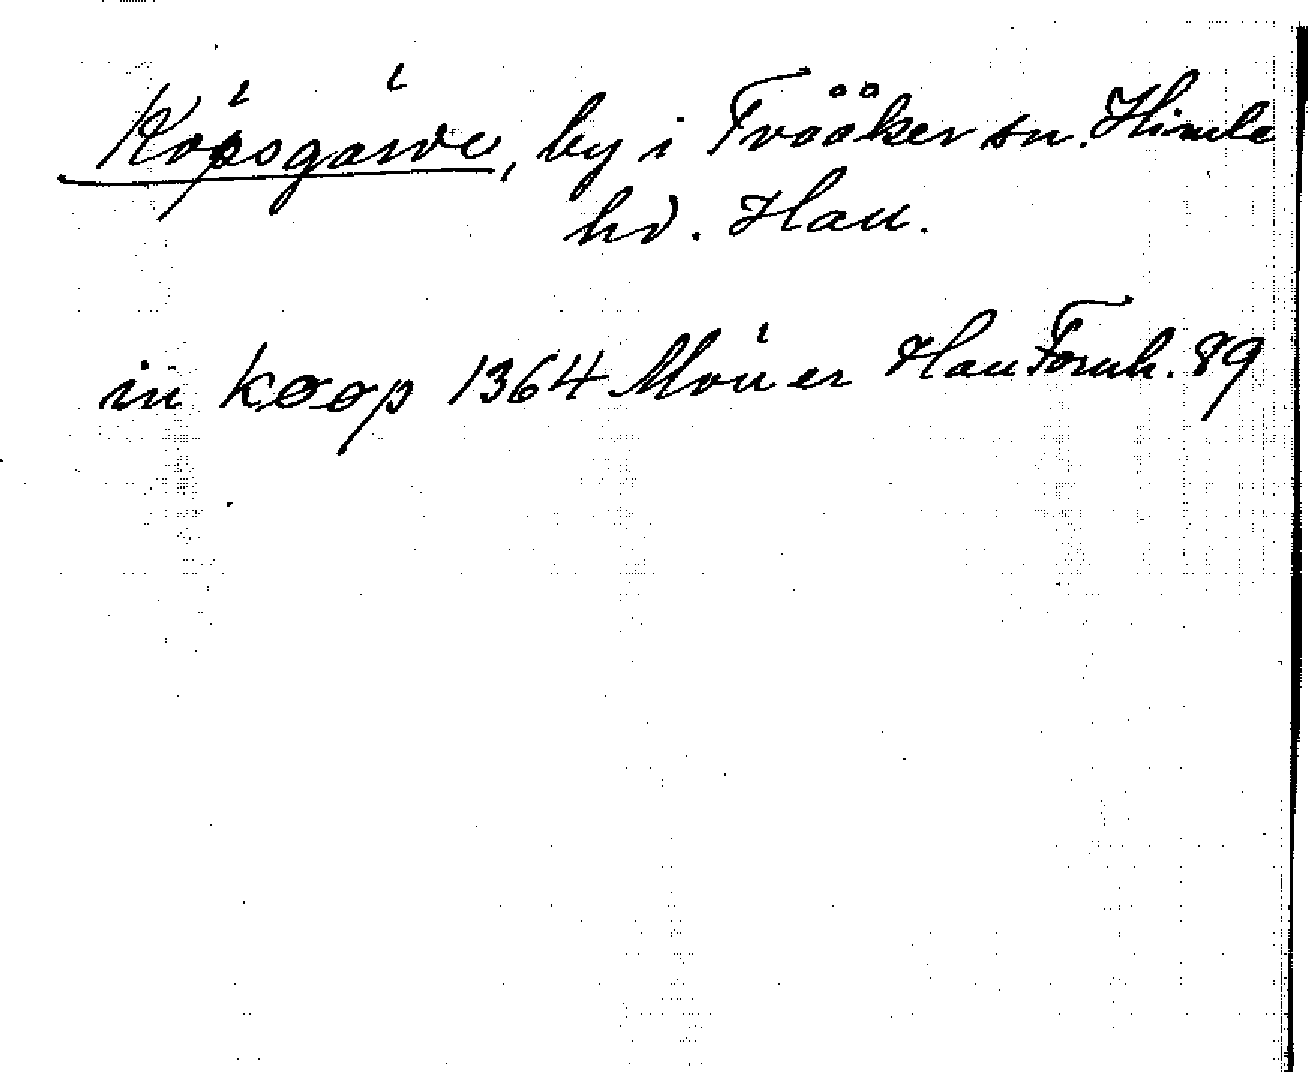 Köpsgårde, by i Tvååker sn. Himle
hd. Hall.
in Køøp 1364 Möller Hall Fornh. 89